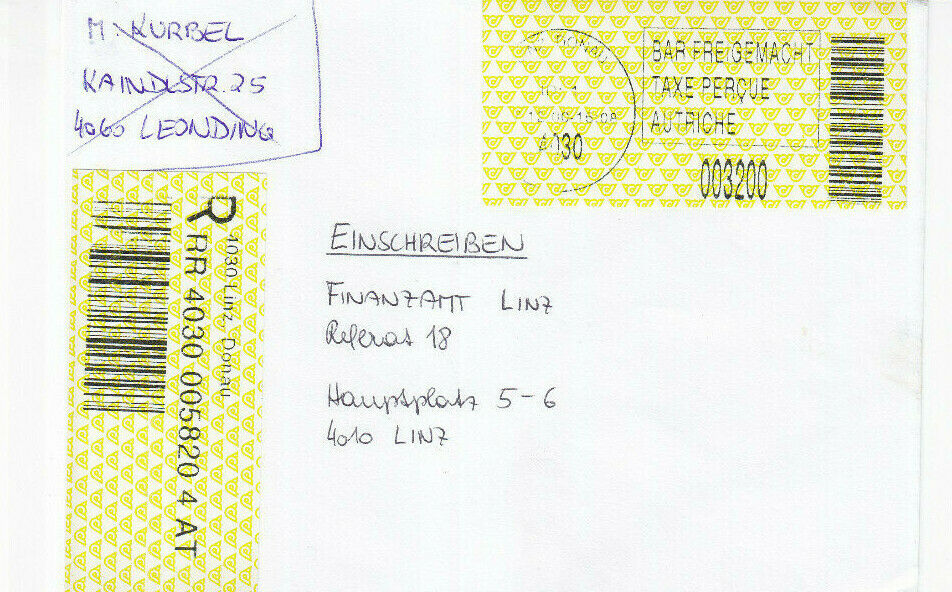 M. KURBEL
KAINDLSTR. 25
4060 LEONDING
BAR FREIGEMACHT
TAXE PERÇUE
AUTRICHE
4030
003200
R
4030 Linz, Donau
RR 4030 005820 4 AT
EINSCHREIBEN
FINANZAMT LINZ
Referat 18
Hauptplatz 5-6
4010 LINZ